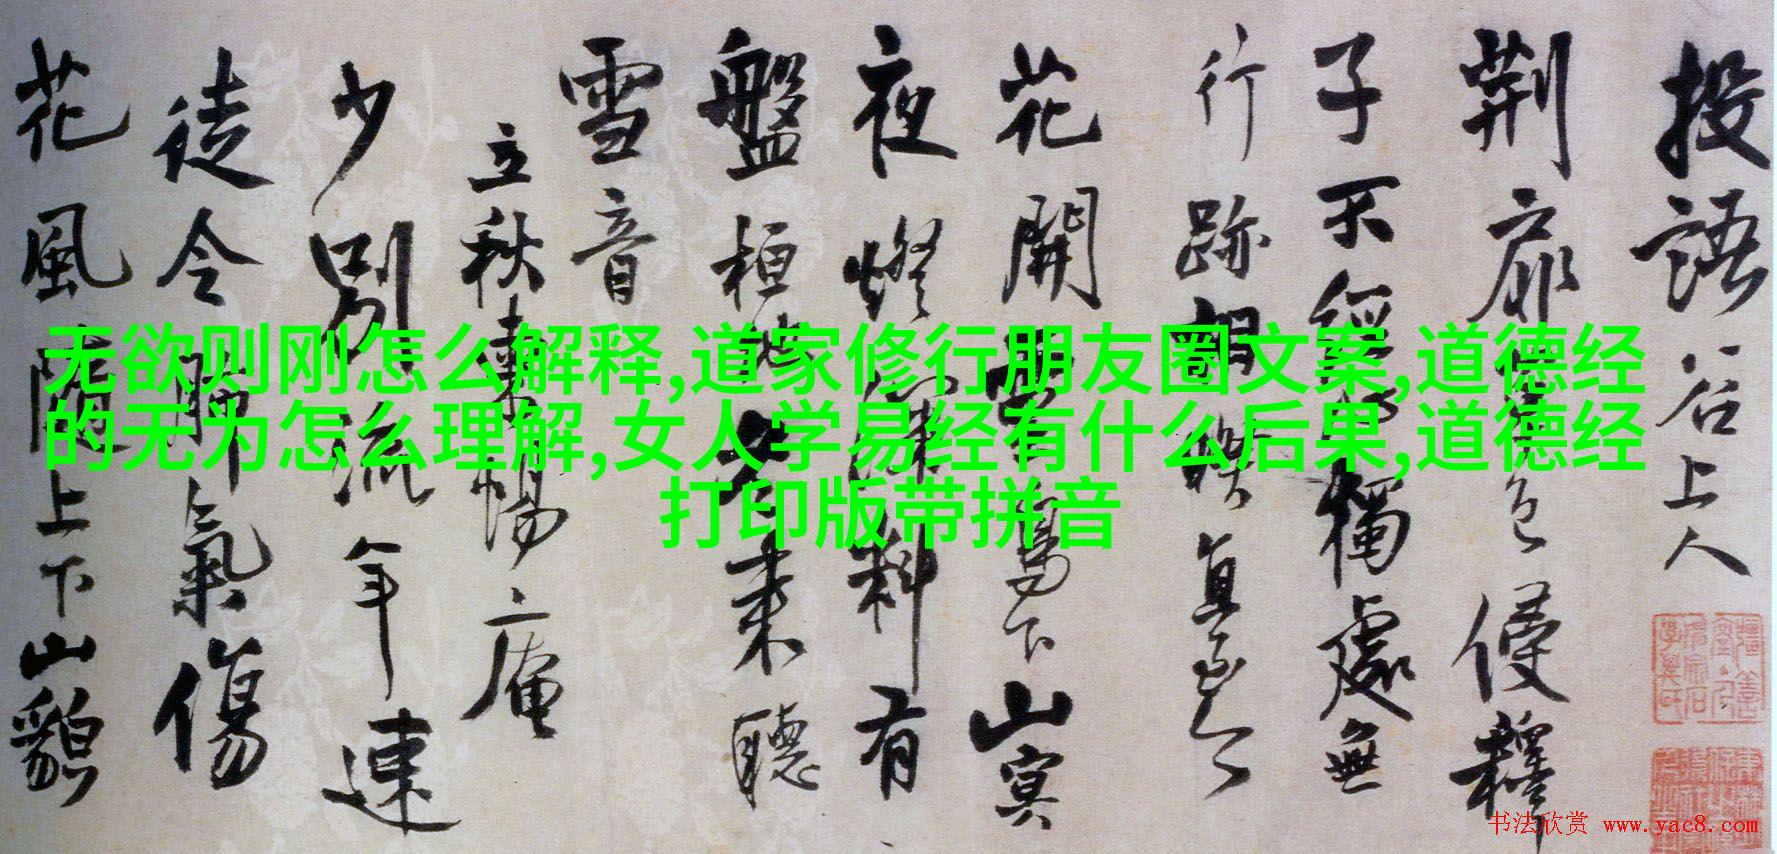 投語谷上人
荆扉色侵釋
子不經獨處無
行跡相
花開下山寞
夜燈料有
盤桓來聽
雪音
立秋暢庵
少別流年速
徒令氣傷
花風上下山貌
无欲则刚怎么解释,道家修行朋友圈文案,道德经
的无为怎么理解,女人学易经有什么后果,道德经
打印版带拼音
书法欣赏 www.yac8.com